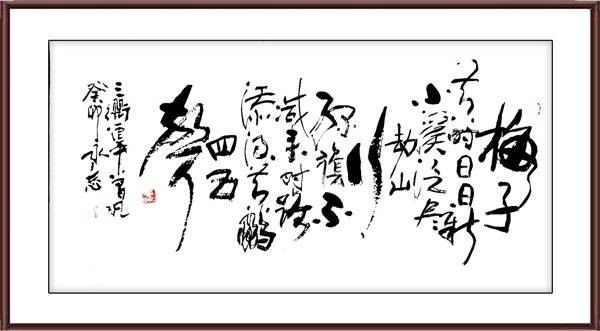 梅子
黄时日日晴
小溪泛尽
却山
行
绿阴不
减来时路
添得黄鹂
四五
声
三衢道中曾几
癸卯